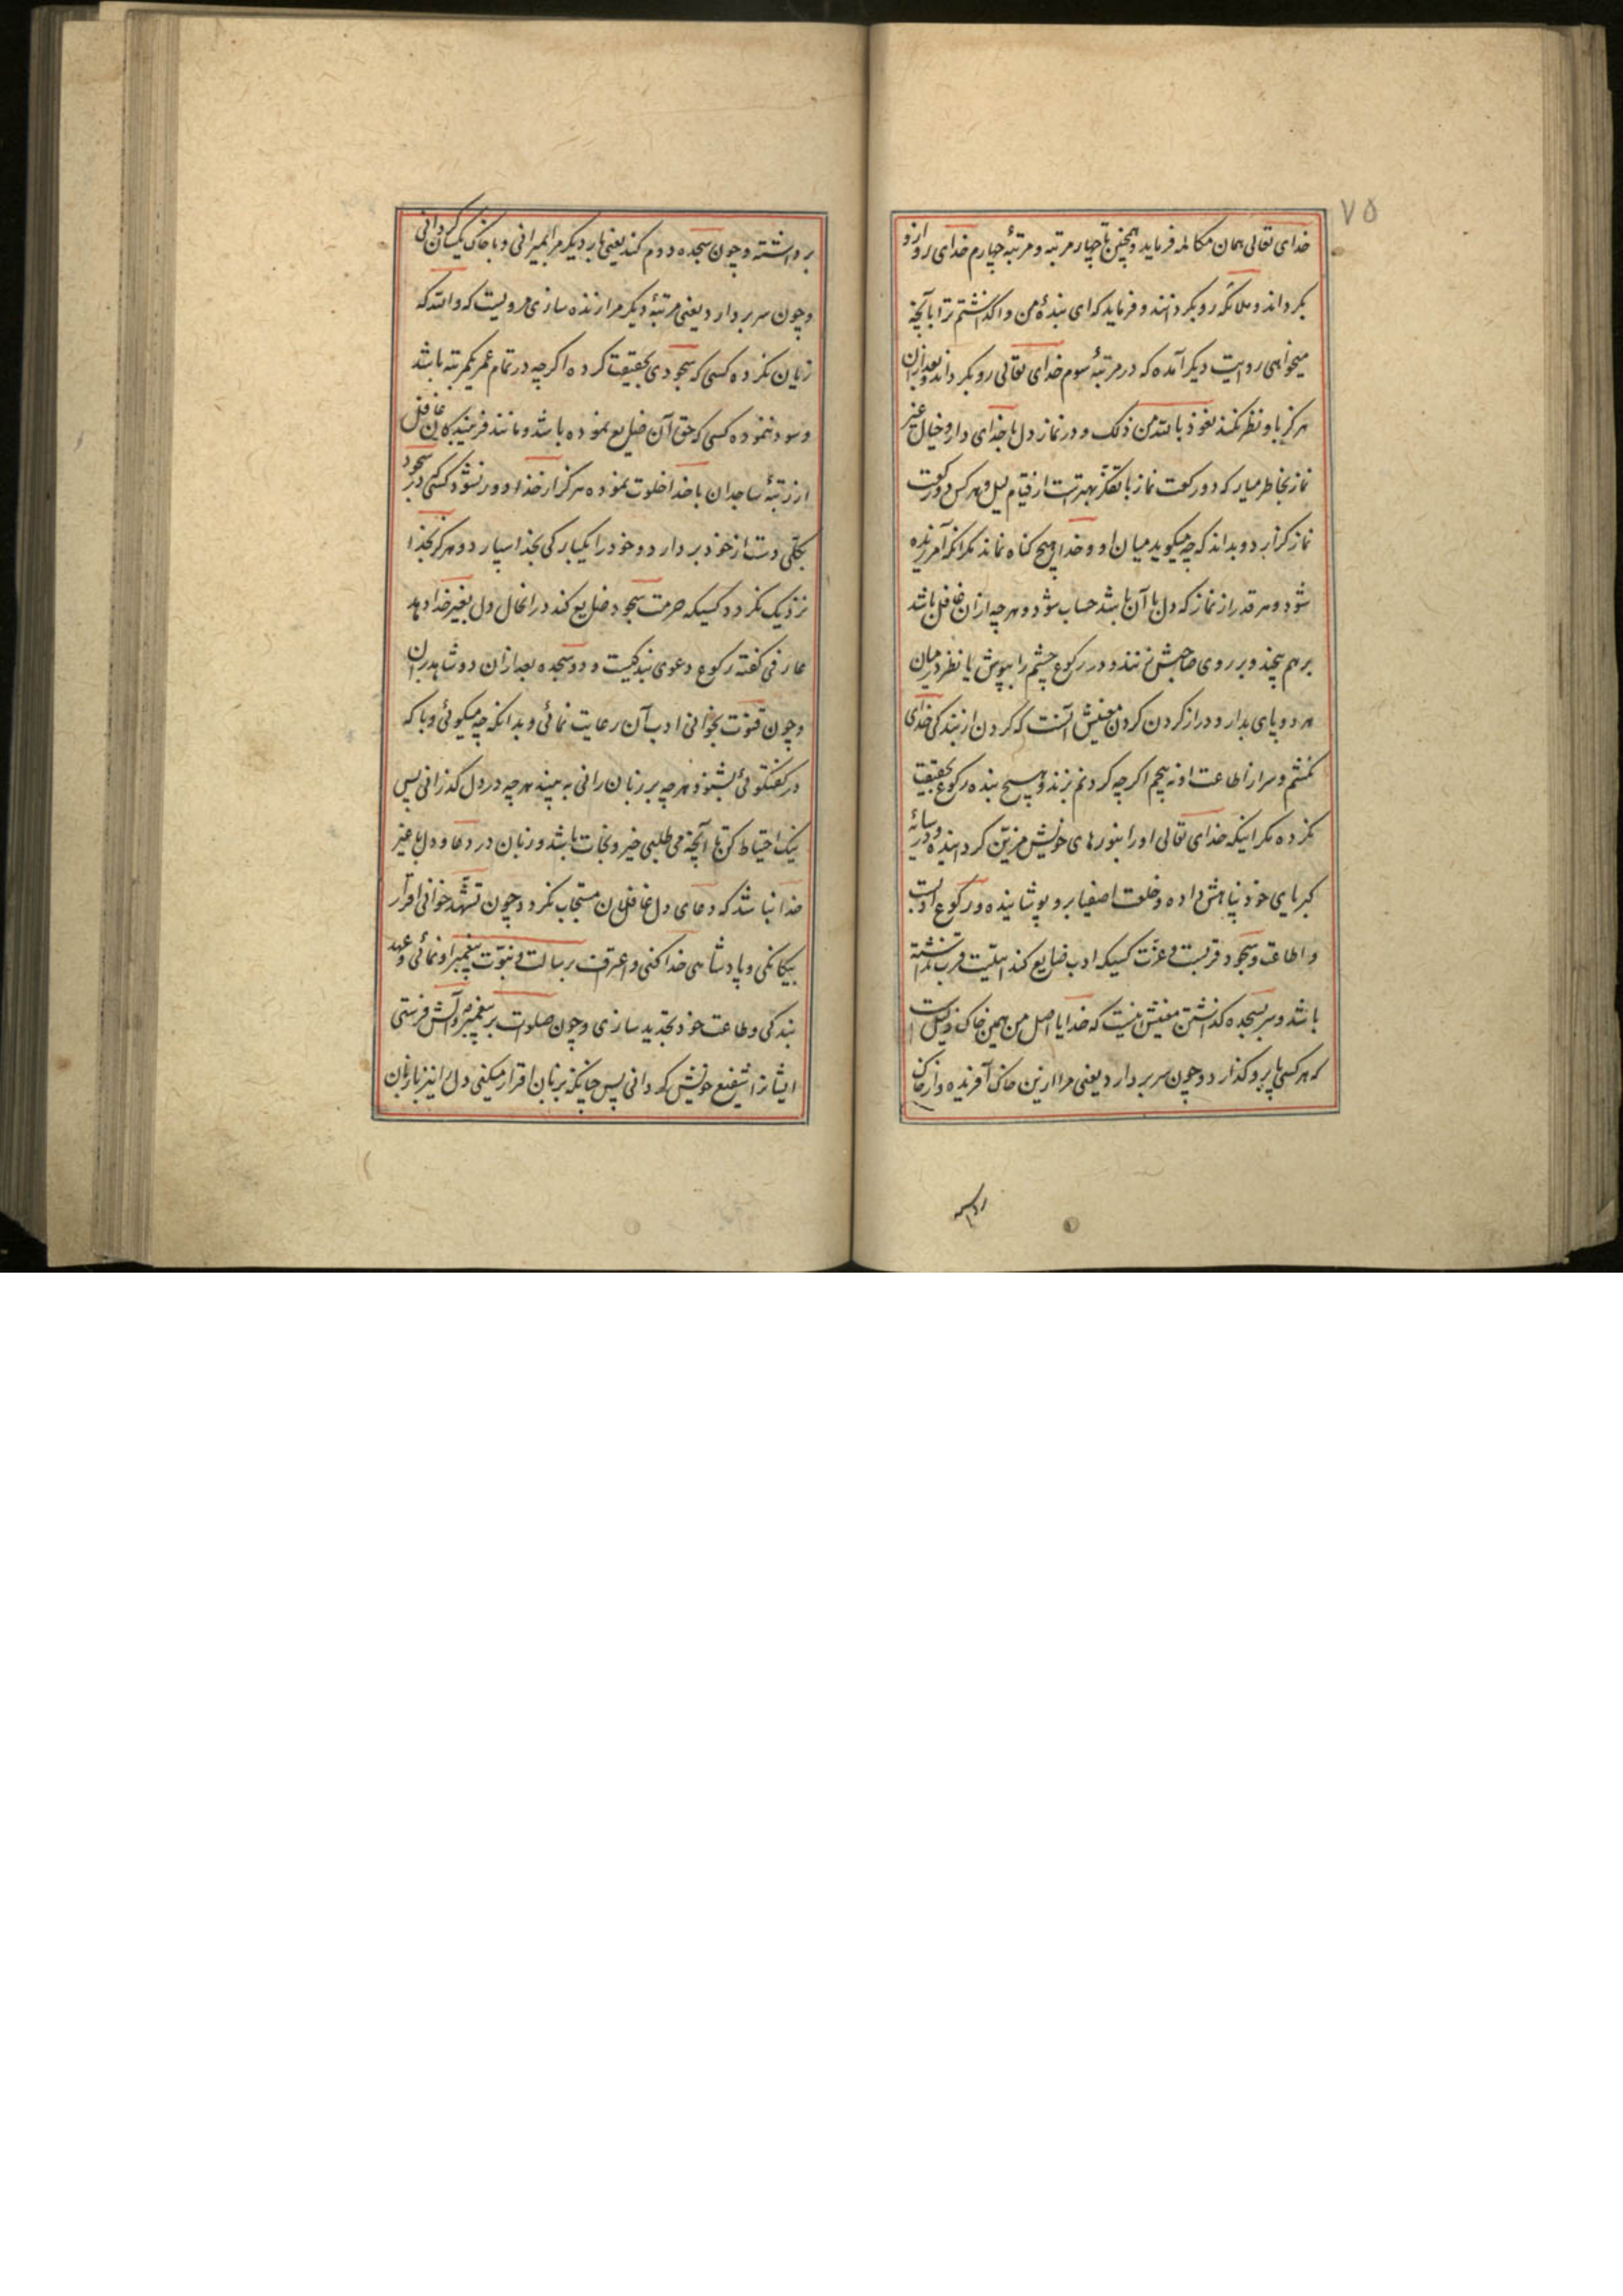 ۷۵
خدای تعالی همان مکالمه فرماید و همچنین تا چهار مرتبه و مرتبهٔ چهارم خدای رو ازو
بکرداند و ملائکه رو بکردانند و فرماید که ای بندهٔ من واکذاشتم ترا بآنچه
میخواهی و در روایت دیکر آمده که در مرتبهٔ سوم خدای تعالی رو بکرداند و بعد ازان
هرکز باو نظر نکند نعوذ بالله من ذلک و در نماز دل با خدای دار و خیال غیر
نماز بخاطر میار که دو رکعت نماز با تفکّر بهتر است از قیام لیل و هر کس دو رکعت
نماز کزارد و بداند که چه میکوید میان او و خدا هیچ کناه نماند مکر آنکه آمرزیده
شود و هر قدر از نماز که دل با آن باشد حساب شود و هر چه ازان غافل باشد
برهم پیچند و بر روی صاحبش زنند و در رکوع چشم را بپوش یا نظر در میان
هر دو پای بدار و دراز کردن کردن معنیش آنست که کردن از بندکی خدای
نکشم و سر از اطاعت او نه پیچم اکرچه کردنم بزند و هیچ بنده رکوع بحقیقت
نکرده مکر اینکه خدای تعالی او را بنورهای خویش مزیّن کردانیده و در سایهٔ
کبریای خود پناهش داده و خلعت اصفیا برو پوشانیده و رکوع ادبست
و اطاعت و سجود قربست و عزّت کسیکه ادب ضایع کند اهلیت قرب نداشته
باشد و سر بسجده کذاشتن معنیش اینست که خدایا اصل من همین خاک ذلیل است
که هر کسی پا برو کذارد و چون سر بردارد یعنی مرا ازین خاک آفریده و از خاک
برداشته و چون سجده دوم کند یعنی بار دیکر مرا بمیرانی و با خاک یکسان کردانی
و چون سر بردارد یعنی مرتبهٔ دیکر مرا زنده سازی مرویست که والله که
زیان نکرده کسی که سجودی بحقیقت کرده اکرچه در تمام عمر یکمرتبه باشد
و سود ننموده کسی که حق آن ضایع نموده باشد و مانند فریبندکان غافل
از رتبهٔ ساجدان با خدا خلوت نموده هرکز از خدا دور نشود کسی که در سجود
بکلی دست از خود بردارد و خود را یکبارکی بخدا سپارد و هرکز بخدا
نزدیک نکردد کسیکه حرمت سجود ضایع کند در انحال دل بغیر خدا دهد
عارفی کفته رکوع دعوی بندکیست و دو سجده بعد ازان دو شاهد بران
و چون قنوت بخوانی ادب آن رعایت نمائی و بدانکه چه میکوئی و با که
در کفتکوئی بشنود هر چه بر زبان رانی به بیند هر چه در دل کذرانی پس
نیک احتیاط کن تا آنچه می طلبی خیر و نجات باشد و زبان در دعا و دل با غیر
خدا نباشد که دعای دل غافلان مستجاب نکردد و چون تشهّد خوانی اقرار
بیکانکی و پادشاهی خدا کنی و اعتراف برسالت و نبوّت پیغمبر او نمائی و عهد
بندکی و طاعت خود تجدید سازی و چون صلوات بر پیغمبر و آلش فرستی
ایشانرا شفیع خویش کردانی پس چنانکه بزبان اقرار میکنی دل را نیز با زبان